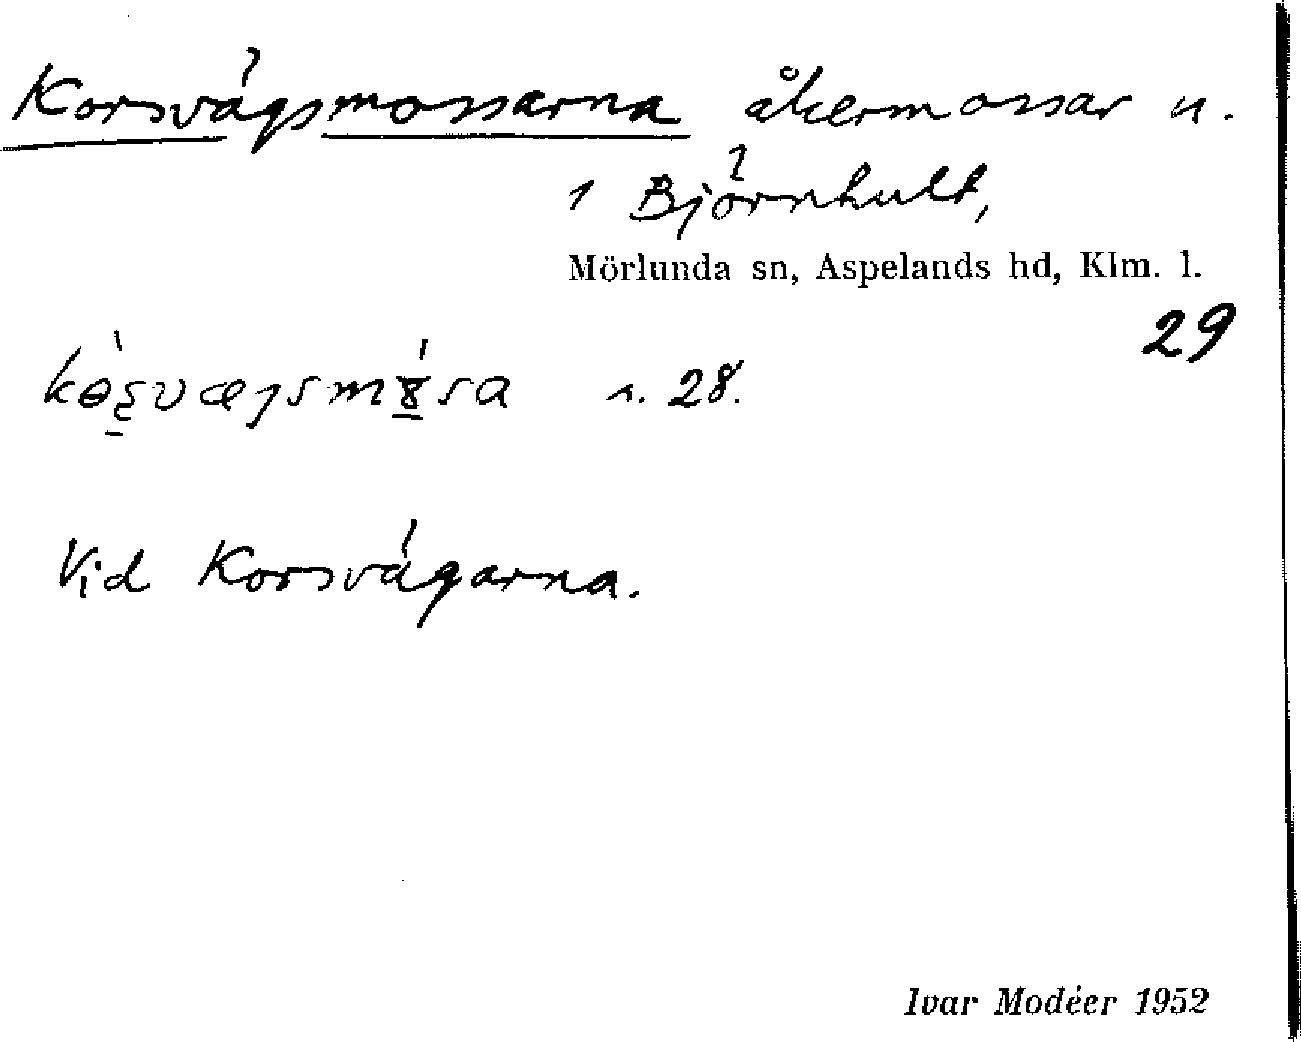 Korsvägsmossarna åkermossar n.
1 Björnhult,
Mörlunda sn, Aspelands hd, Klm. l.
29
s. 28.
Vid Korsvägarna.
Ivar Modéer 1952